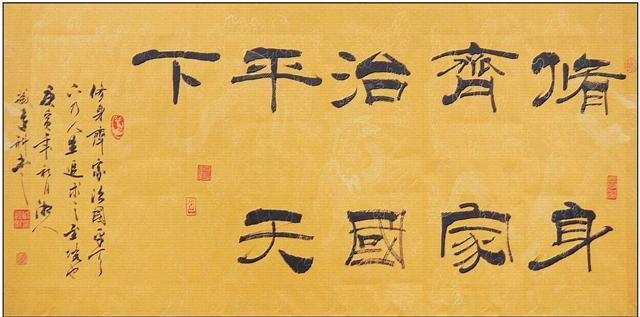 脩身
齊家
治國
平天
下
修身齊家治國平天
下乃人生追求之至境也
庚寅年月湘人
書